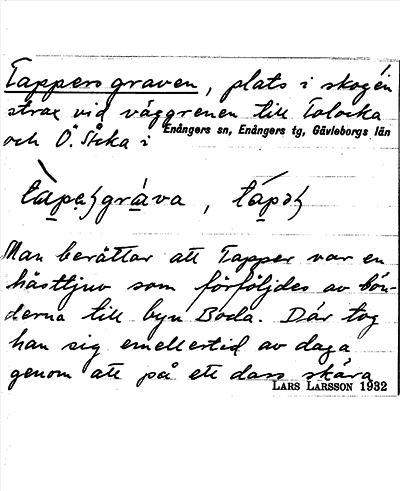 Tappersgraven, plats i skogen
strax vid väggrenen till Tolocka
och Ö. Stka i Enångers sn, Enångers tg, Gävleborgs län
Man berättar att Tapper var en
hästtjuv som förföljdes av bön-
derna till byn Boda. Där tog
han sig emellertid av daga
genom att på ett dass skära
LARS LARSSON 1932